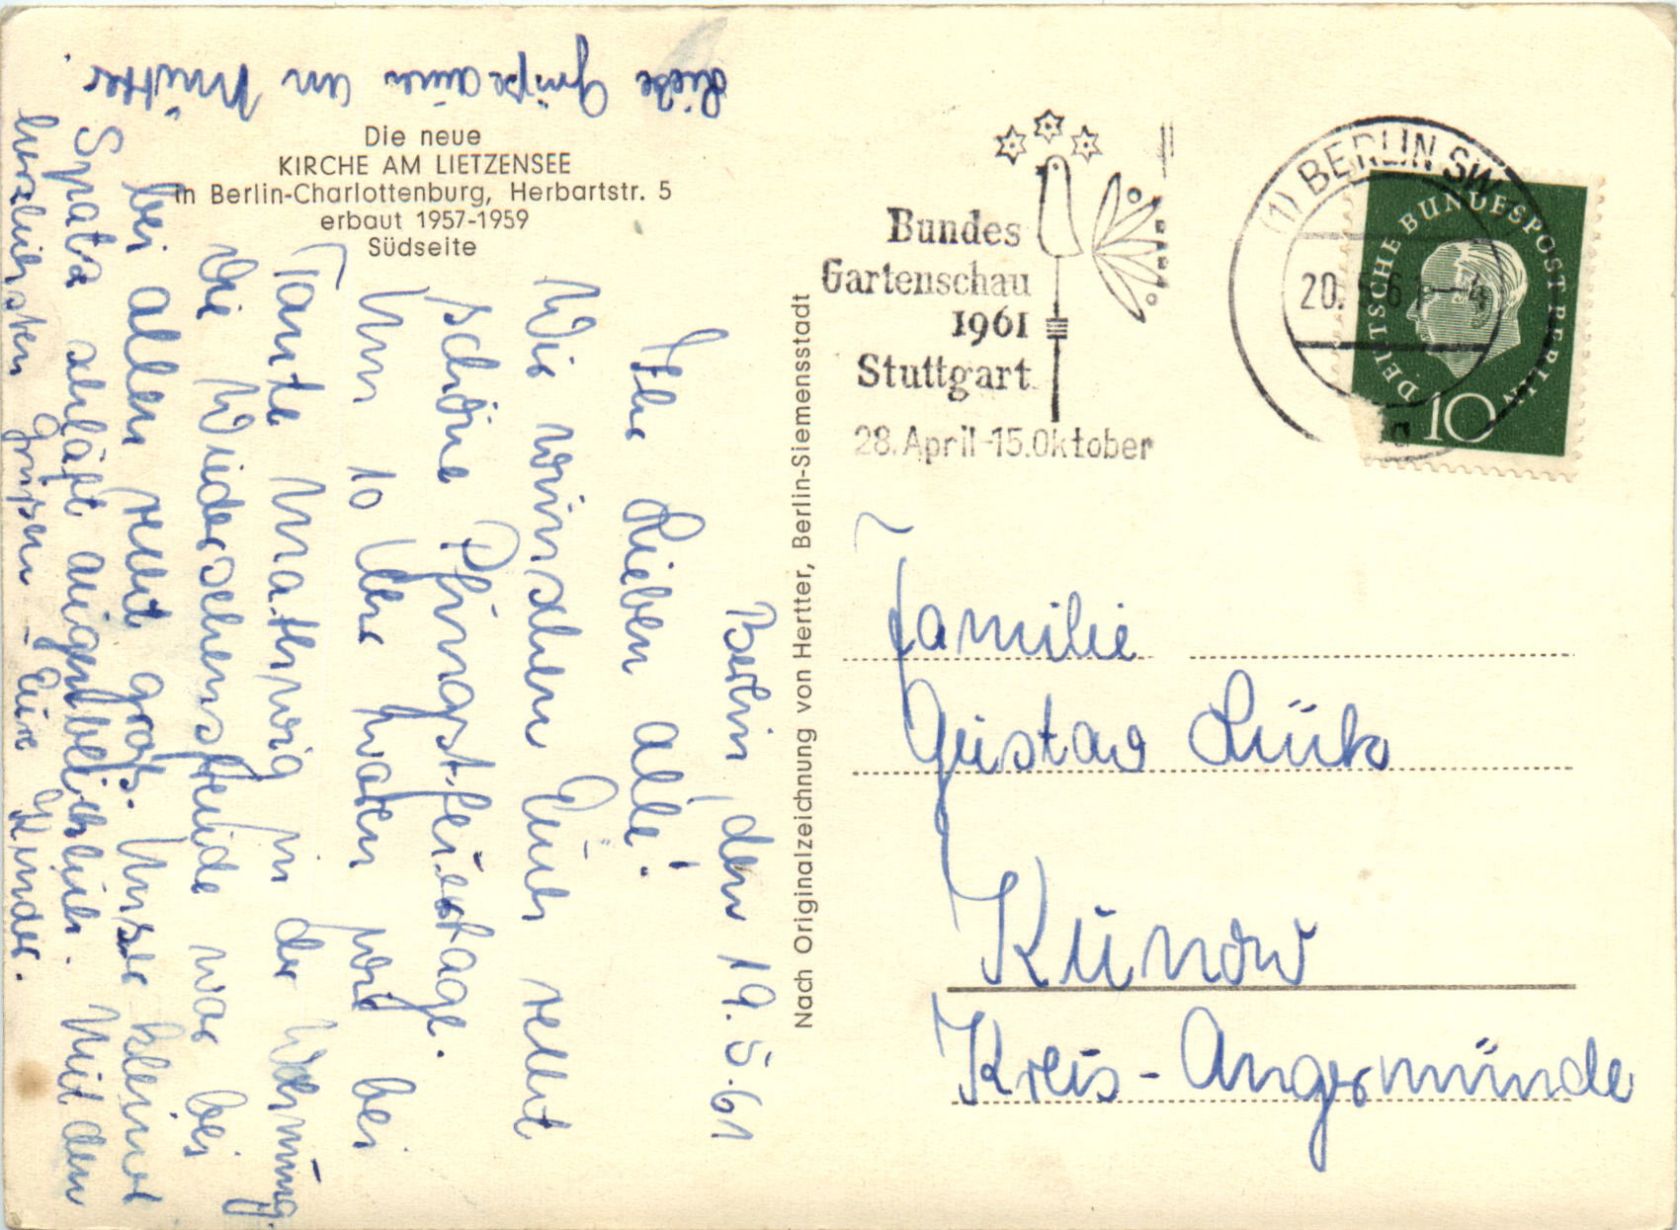 Liebe Grüße auch an Mutter.
Die neue
KIRCHE AM LIETZENSEE
in Berlin-Charlottenburg, Herbartstr. 5
erbaut 1957-1959
Südseite
Berlin, den 19.5.61
Ihr Lieben alle!
Wir wünschen Euch recht
schöne Pfingstfeiertage.
Um 10 Uhr waren wir bei
Tante in der Wohnung.
Die Wiedersehensfreude war bei
bei allen recht groß. Unser kleiner
Spatz schläft augenblicklich. Mit den
herzlichsten Grüßen - Eure Kinder.
Nach Originalzeichnung von Hertter, Berlin-Siemensstadt
Bundes
Gartenschau
1961
Stuttgart
28. April-15. Oktober
(1) BERLIN SW
20.
DEUTSCHE BUNDESPOST BERLIN
10
Familie
Gustav Lück
Kunow
Kreis-Angermünde